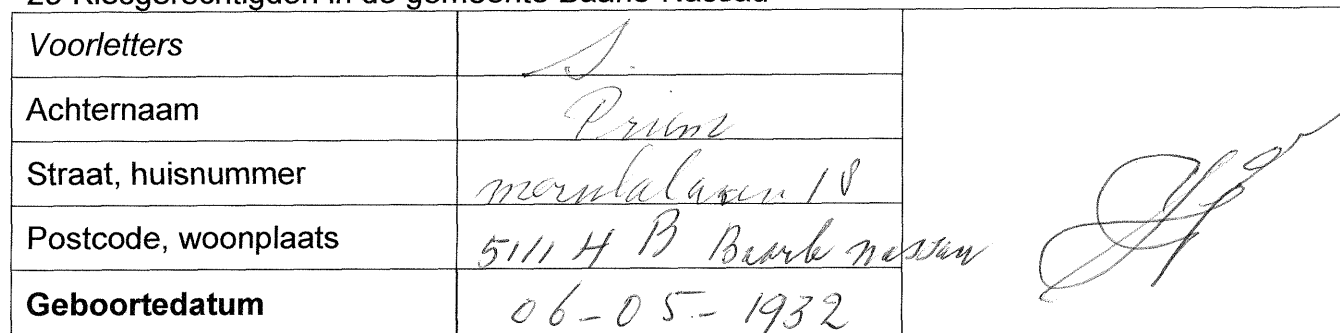 Voorletters S.
Achternaam Priem
Straat, huisnummer 18
Postcode, woonplaats 5111 H B Baarle Nassau
Geboortedatum 06-05-1932